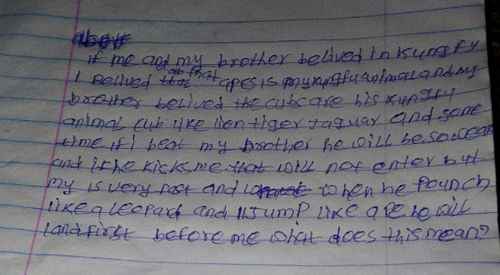 if me and my brother belived in kungfu
I Belived that apes is my kungfu animal and my
brother belived the cubs are his kungfu
animal cub like lion tiger Jaguar and some
time if i beat my brother he will be
and if he kicks me that will not enter but
my is very fast and when he Pounch
like a leopard and I Jump like ape he will
land first before me what does this mean?